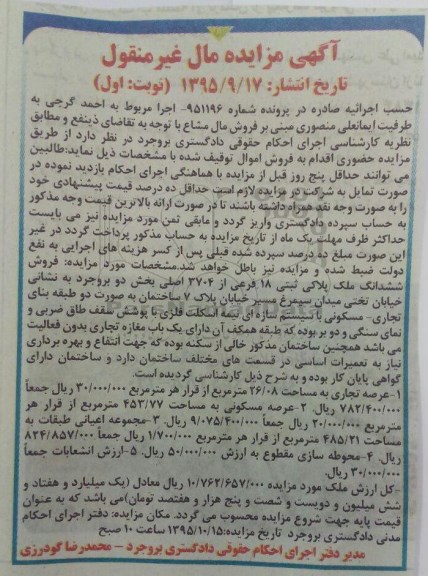 آگهی مزایده مال غیرمنقول
تاریخ انتشار: ۱۳۹۵/۹/۱۷ (نوبت: اول)
حسب اجرائیه صادره در پرونده شماره ۹۵۱۱۹۶- اجرا مربوط به احمد گرجی به
طرفیت ایمانعلی منصوری مبنی بر فروش مال مشاع با توجه به تقاضای ذینفع و مطابق
نظریه کارشناسی اجرای احکام حقوقی دادگستری بروجرد در نظر دارد از طریق
مزایده حضوری اقدام به فروش اموال توقیف شده با مشخصات ذیل نماید:طالبین
می توانند حداقل پنج روز قبل از مزایده با هماهنگی اجرای احکام بازدید نموده در
صورت تمایل به شرکت در مزایده لازم است حداقل ده درصد قیمت پیشنهادی خود
را به صورت وجه نقد همراه داشته باشند تا در صورت ارائه بالاترین قیمت وجه مذکور
به حساب سپرده دادگستری واریز گردد و مابقی ثمن مورد مزایده نیز می بایست
حداکثر ظرف مهلت یک ماه از تاریخ مزایده به حساب مذکور پرداخت گردد در غیر
این صورت مبلغ ده درصد سپرده شده قبلی پس از کسر هزینه های اجرایی به نفع
دولت ضبط شده و مزایده نیز باطل خواهد شد.مشخصات مورد مزایده: فروش
ششدانگ ملک پلاکی ثبتی ۱۸ فرعی از ۳۷۰۴ اصلی بخش دو بروجرد به نشانی
خیابان تختی میدان سیمرغ مسیر خیابان پلاک ۷ ساختمان به صورت دو طبقه بنای
تجاری- مسکونی با سیستم سازه ای نیمه اسکلت فلزی با پوشش سقف طاق ضربی و
نمای سنگی و دو بر بوده که طبقه همکف آن دارای یک باب مغازه تجاری بدون فعالیت
می باشد همچنین ساختمان مذکور خالی از سکنه بوده که جهت انتفاع و بهره برداری
نیاز به تعمیرات اساسی در قسمت های مختلف ساختمان دارد و ساختمان دارای
گواهی پایان کار بوده و به شرح ذیل کارشناسی گردیده است.
۱-عرصه تجاری به مساحت ۲۶/۰۸ مترمربع از قرار هر مترمربع ۳۰/۰۰۰/۰۰۰ ریال جمعاً
۷۸۲/۴۰۰/۰۰۰ ریال. ۲-عرصه مسکونی به مساحت ۴۵۳/۷۷ مترمربع از قرار هر
مترمربع ۲۰/۰۰۰/۰۰۰ ریال جمعاً ۹/۰۷۵/۴۰۰/۰۰۰ ریال. ۳-مجموعه اعیانی طبقات به
مساحت ۴۸۵/۲۱ مترمربع از قرار هر مترمربع ۱/۷۰۰/۰۰۰ ریال جمعاً ۸۲۴/۸۵۷/۰۰۰
ریال. ۴-محوطه سازی مقطوع به ارزش ۵۰/۰۰۰/۰۰۰ ریال. ۵-ارزش انشعابات جمعاً
۳۰/۰۰۰/۰۰۰ ریال.
-کل ارزش ملک مورد مزایده ۱۰/۷۶۲/۶۵۷/۰۰۰ ریال معادل (یک میلیارد و هفتاد و
شش میلیون و دویست و شصت و پنج هزار و هفتصد تومان)می باشد که به عنوان
قیمت پایه جهت شروع مزایده محسوب می گردد. مکان مزایده: دفتر اجرای احکام
مدنی دادگستری بروجرد تاریخ مزایده:۱۳۹۵/۱۰/۱۵ ساعت ۱۰ صبح
مدیر دفتر اجرای احکام حقوقی دادگستری بروجرد - محمدرضا گودرزی